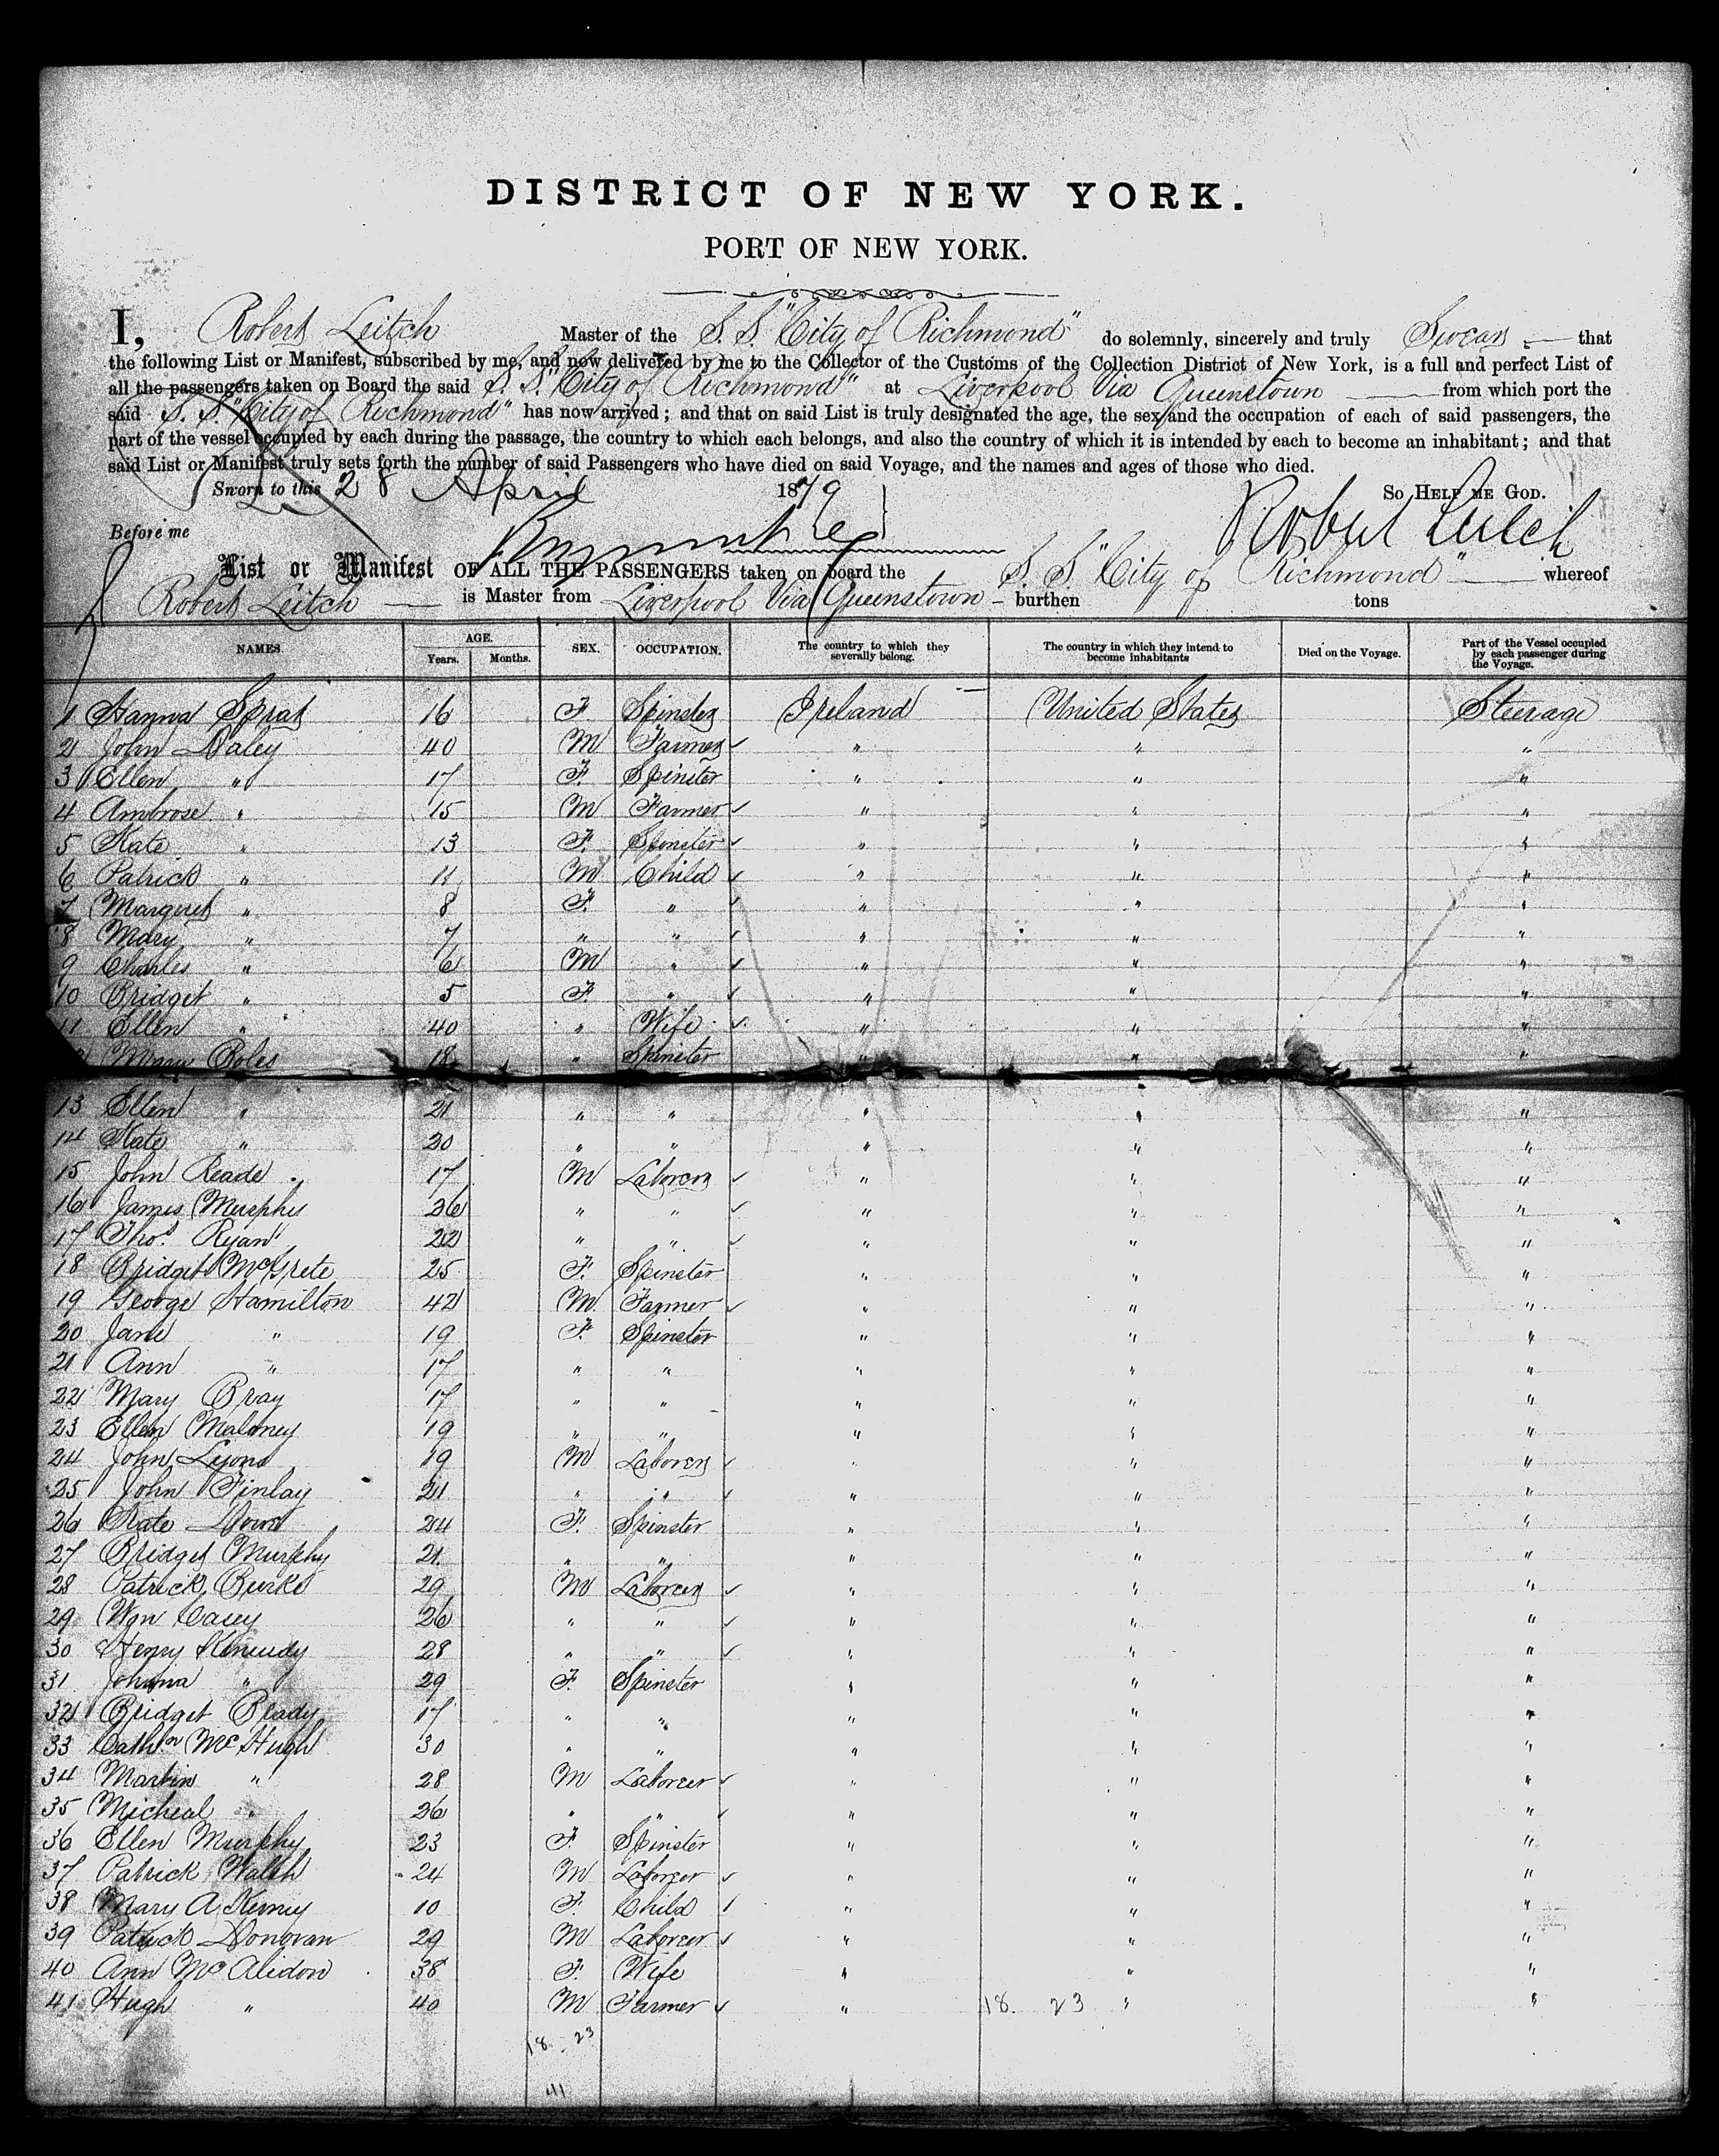 DISTRICT OF NEW YORK.
PORT OF NEW YORK.
I, Robert Leitch Master of the S. S. "City of Richmond" do solemnly, sincerely and truly Swear that
the following List or Manifest, subscribed by me, and now delivered by me to the Collector of the Customs of the Collection District of New York, is a full and perfect List of
all the passengers taken on Board the said S. S. "City of Richmond" at Liverpool Via Queenstown from which port the
said S. S. "City of Richmond" has now arrived; and that on said List is truly designated the age, the sex and the occupation of each of said passengers, the
part of the vessel occupied by each during the passage, the country to which each belongs, and also the country of which it is intended by each to become an inhabitant; and that
said List or Manifest truly sets forth the number of said Passengers who have died on said Voyage, and the names and ages of those who died.
Sworn to this 28 April 1879 So HELP ME GOD.
Before me Robert Leitch
List or Manifest OF ALL THE PASSENGERS taken on board the S. S. "City of Richmond" whereof
Robert Leitch is Master from Liverpool Via Queenstown burthen tons
NAMES. AGE. Years. Months. SEX. OCCUPATION. The country to which they severally belong. The country in which they intend to become inhabitants Died on the Voyage. Part of the Vessel occupied by each passenger during the Voyage.
1 Hanna Sprat 16 F. Spinster Ireland United States Steerage
2 John Daley 40 M Farmer " " "
3 Ellen " 17 F. Spinster " " "
4 Ambrose " 15 M Farmer " " "
5 Kate " 13 F. Spinster " " "
6 Patrick " 11 M Child " " "
7 Margaret " 8 F. " " " "
8 Mary " 7 " " " " "
9 Charles " 6 M " " " "
10 Bridget " 5 F. " " " "
11 Ellen " 40 " Wife " " "
Mary Boles 18 " Spinster " " "
13 Ellen " 21 " " " " "
14 Kate " 20 " " " " "
15 John Reade 17 M Laborer " " "
16 James Murphy 26 " " " " "
17 Thos. Ryan 22 " " " " "
18 Bridget McGrete 25 F. Spinster " " "
19 George Hamilton 42 M Farmer " " "
20 Jane " 19 F. Spinster " " "
21 Ann " 17 " " " " "
22 Mary Bray 17 " " " " "
23 Ellen Maloney 19 " " " " "
24 John Lyons 19 M Laborer " " "
25 John Finlay 21 " " " " "
26 Kate Dowd 24 F. Spinster " " "
27 Bridget Murphy 21 " " " " "
28 Patrick Burke 29 M Laborer " " "
29 Wm Casey 26 " " " " "
30 Henry Kennedy 28 " " " " "
31 Johana " 29 F. Spinster " " "
32 Bridget Ready 17 " " " " "
33 Cathn McHugh 30 " " " " "
34 Martin " 28 M Laborer " " "
35 Micheal " 26 " " " " "
36 Ellen Murphy 23 F. Spinster " " "
37 Patrick Walsh 24 M Laborer " " "
38 Mary A Kenny 10 F. Child " " "
39 Patrick Donovan 29 M Laborer " " "
40 Ann McAledon 38 F. Wife " " "
41 Hugh " 40 M Farmer " 18. 23 " "
18. 23
41